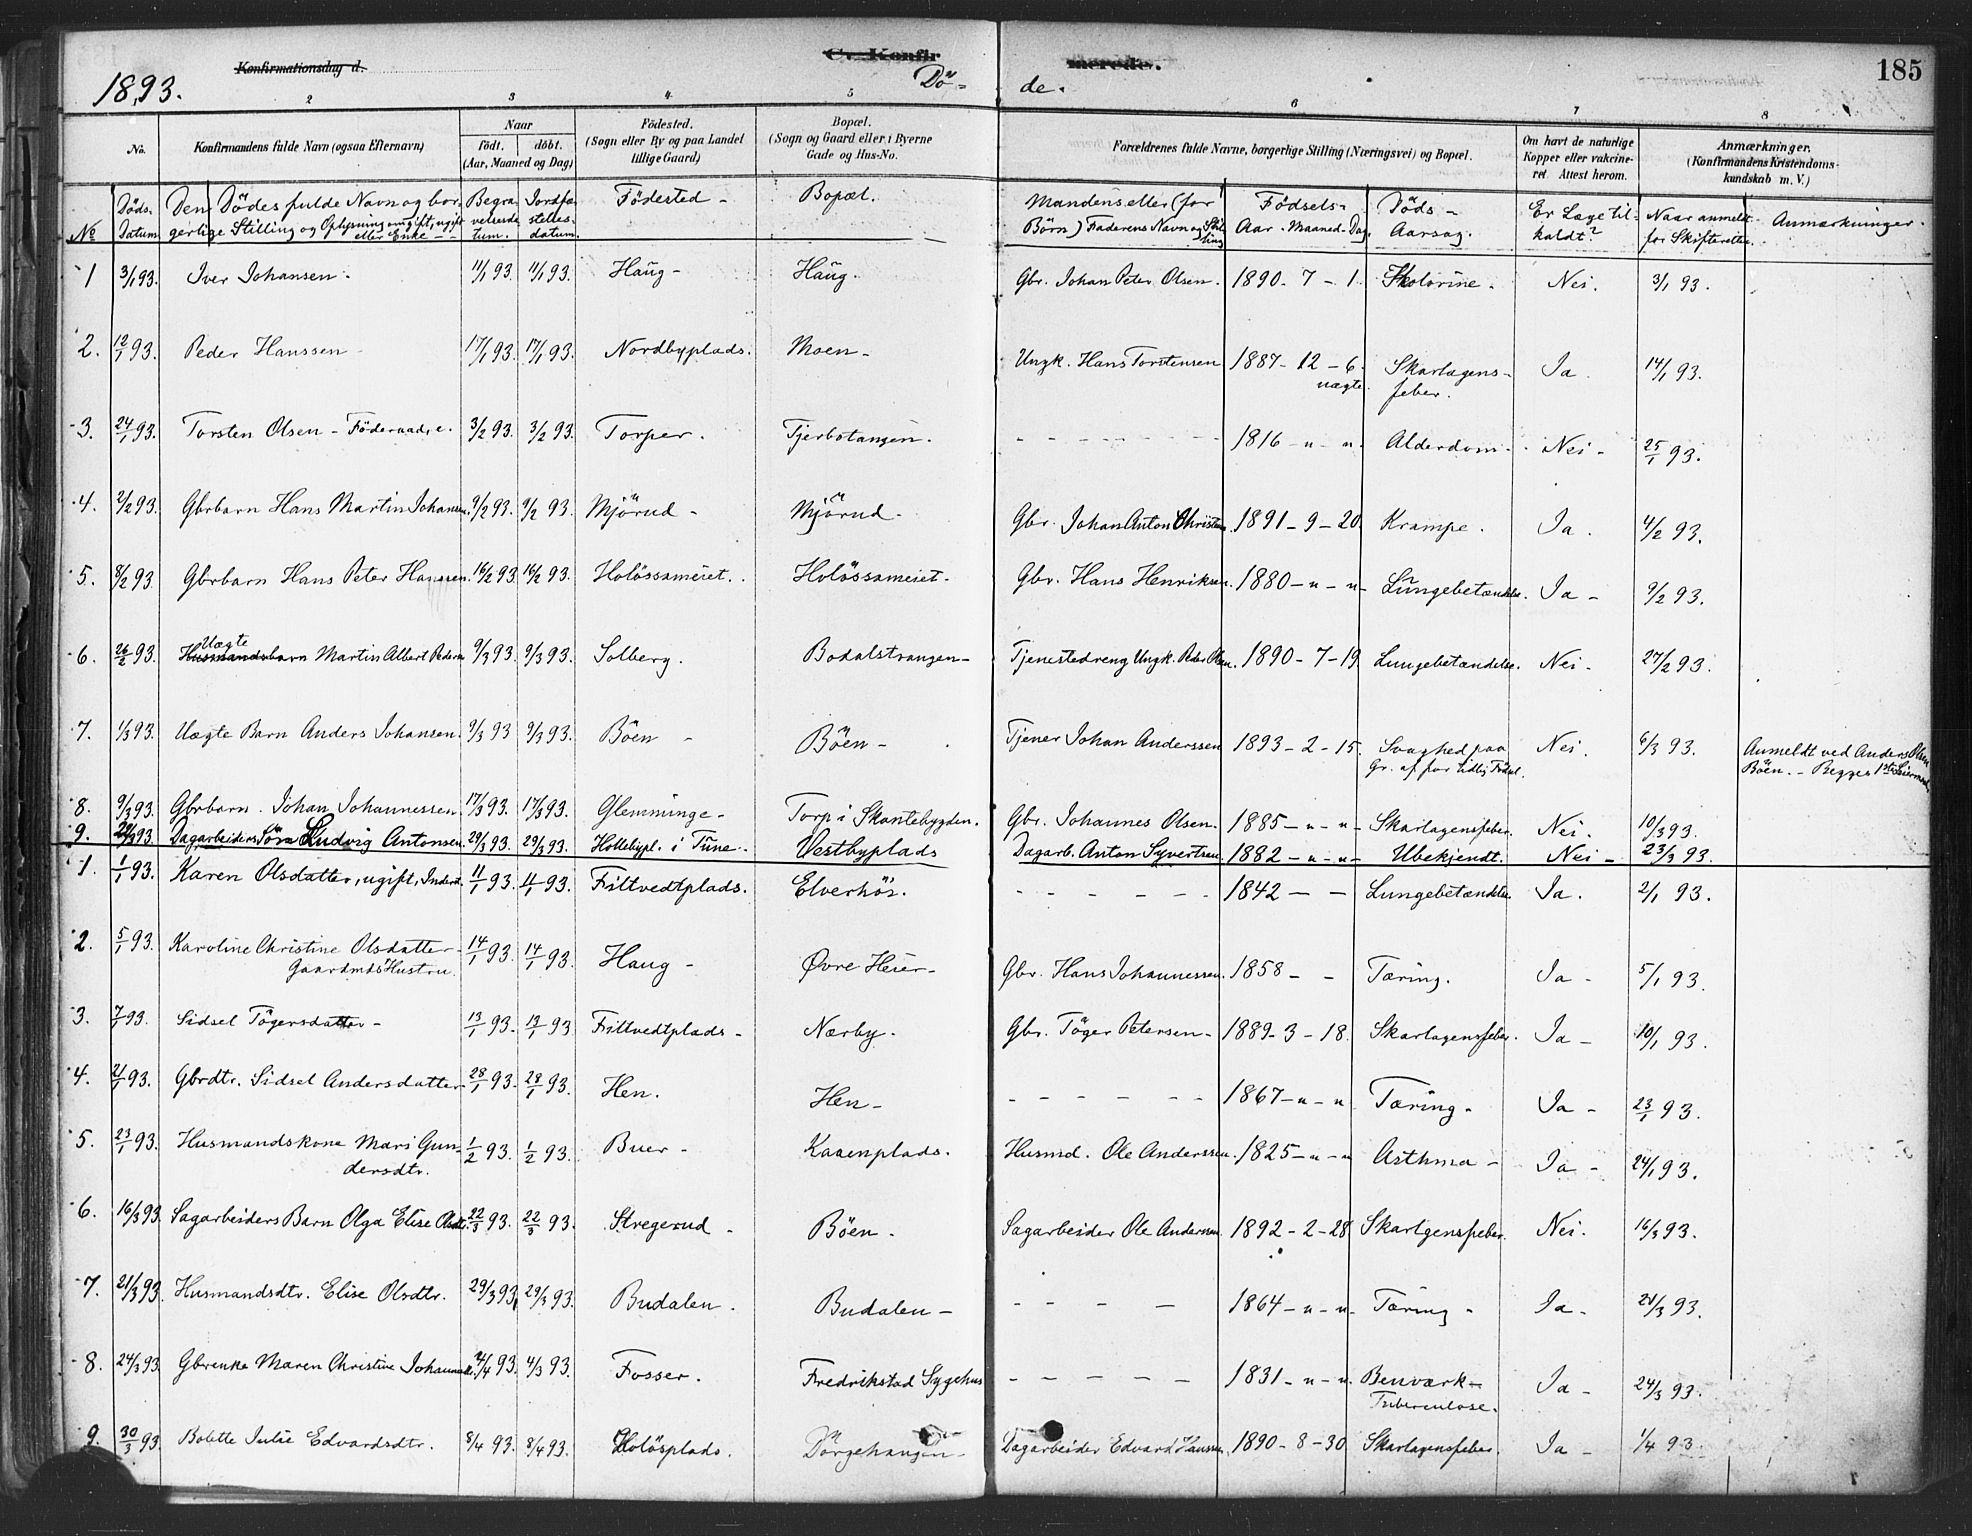 185
Konfirmationsdag d.
C. Konfir merede.
1893.
Dö- de.
2 3 4 5 6 7 8
No. Konfirmandens fulde Navn (ogsaa Efternavn) Naar födt. döbt. (Aar, Maaned og Dag) Födested. (Sogn eller By og paa Landet tillige Gaard) Bopæl. (Sogn og Gaard eller i Byerne Gade og Hus-No. Forældrenes fulde Navne, borgerlige Stilling (Næringsvei) og Bopæl. Om havt de naturlige Kopper eller vakcineret. Attest herom. Anmærkninger. (Konfirmandens Kristendomskundskab m. V.)
No Döds-Datum Den Dödes fulde Navn og borgerlige Stilling og Oplysning om gift, ugift eller Enke - Begravelsesdatum. Jordfæstelsesdatum. Födested - Bopæl. Mandens eller (for Börn) Faderens Navn og Stilling Födsels- Aar - Maaned - Dag. Döds- Aarsag. Er Læge tilkaldt? Naar anmeldt for Skifteretten. Anmærkninger.
1 3/1 93. Iver Johansen - 11/1 93. 11/1 93. Haug - Haug. Gbr. Johan Peter Olsen. 1890 - 7 - 1. Nei. 3/1 93.
2. 12/1 93. Peder Hanssen - 17/1 93. 17/1 93. Nordbyplads. Moen - Ungk. Hans Torstensen 1887 - 12 - 6. uægte. Skarlagens- feber. Ja. 14/1 93.
3. 24/1 93. Torsten Olsen - Föderaad, e. 3/2 93. 3/2 93. Torper. Tjerbotangen. - - - - - - 1816 - " - ". Alderdom - Nei - 25/1 93.
4. 2/2 93. Gbrbarn Hans Martin Johansen. 9/2 93. 9/2 93. Mjörud - Mjörud - Gbr. Johan Anton Christens. 1891 - 9 - 20. Krampe. Ja. 4/2 93.
5. 8/2 93. Gbrbarn Hans Peter Hanssen. 16/2 93. 16/2 93. Holössameiet. Holössameiet - Gbr. Hans Henriksen. 1880 - " - " - Lungebetændelse. Ja - 9/2 93.
6. 26/2 93. Uægte Husmandsbarn Martin Albert Pedersen 9/3 93. 9/3 93. Solberg. Bodalstrangen - Tjenestedreng Ungk. Peder Olsen. 1890 - 7 - 19 Lungebetændelse. Nei - 27/2 93.
7. 1/3 93. Uægte Barn Anders Johansen. 9/3 93 9/3 93. Böen - Böen - Tjener Johan Anderssen 1893 - 2 - 15. Svaghed paa Gr. af for tidlig Födsel. Nei. 6/3 93. Anmeldt ved Anders Olsen Böen. - Begges 1ste Leiermaal.
8. 9/3 93. Gbrbarn. Johan Johannessen. 17/3 93. 17/3 93. Glemminge - Torp i Skantebygden. Gbr. Johannes Olsen. 1885 - " - " - Skarlagensfeber. Nei. 10/3 93.
9. 93. Dagarbeiders Sön Ludvig Antonsen. 29/3 93. 29/3 93. Holtebypl. i Tune - Vestbyplads Dagarb. Anton Syvertsen 1882 - " - " - Ubekjendt. Nei - 23/3 93.
1. 1/1 93. Karen Olsdatter, ugift, Inderst. 11/1 93. 11/1 93. Fittvedtplads. Elverhöi. - - - - - - 1842 - - Lungebetændelse. Ja. 2/1 93.
2. 5/1 93. Karoline Christine Olsdatter - Gaardmds Hustru. 14/1 93. 14/1 93. Haug - Øvre Heier - Gbr. Hans Johannessen. 1858 - - Tæring. Ja - 5/1 93.
3. 7/1 93. Sidsel Tögersdatter - 13/1 93. 13/1 93. Fittvedtplads - Nærby. Gbr. Töger Petersen - 1889 - 3 - 18. Skarlagensfeber. Ja - 10/1 93.
4. 21/1 93. Gbrdtr. Sidsel Andersdatter - 28/1 93. 28/1 93. Hen. Hen - - - - - - - 1867 - " - " Tæring - Ja - 23/1 93.
5. 23/1 93. Husmandskone Mari Gundersdtr. 1/2 93. 1/2 93. Buer - Kaaenplads. Husmd. Ole Anderssen. 1825 - " - " Asthma - Ja - 24/1 93.
6. 16/3 93. Sagarbeiders Barn Olga Elise Olsdtr. 22/3 93. 22/3 93. Stregerud - Böen. Sagarbeider Ole Andersen. 1892 - 2 - 28 Skarlgensfeber. Nei. 16/3 93.
7. 21/3 93. Husmandsdtr. Elise Olsdtr. 29/3 93. 29/3 93. Budalen. Budalen - - - - - 1864 - " - ". Tæring - Ja - 21/3 93.
8. 24/3 93. Gbrenke Maren Christine Johannesdtr. 4/4 93. 4/3 93. Fosser. Fredrikstad Sygehus - - - - - 1831 - " - ". Benværk - Tuberculose. Ja - 24/3 93.
9. 30/3 93. Bolette Julie Edvardsdtr. 8/4 93. 8/4 93. Holösplads. Dörgehaugen - Dagarbeider Edvard Hanssen. 1890 - 8 - 30 Skarlagensfeber. Ja - 1/4 93.